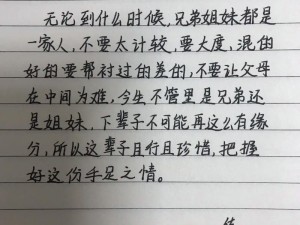 无论到什么时候,兄弟姐妹都是
一家人,不要太计较,要大度,混的
好的要帮衬过的差的,不要让父母
在中间为难,今生不管是兄弟还
是姐妹,下辈子不可能再这么有缘
分,所以这辈子且行且珍惜,把握
好这份手足之情。